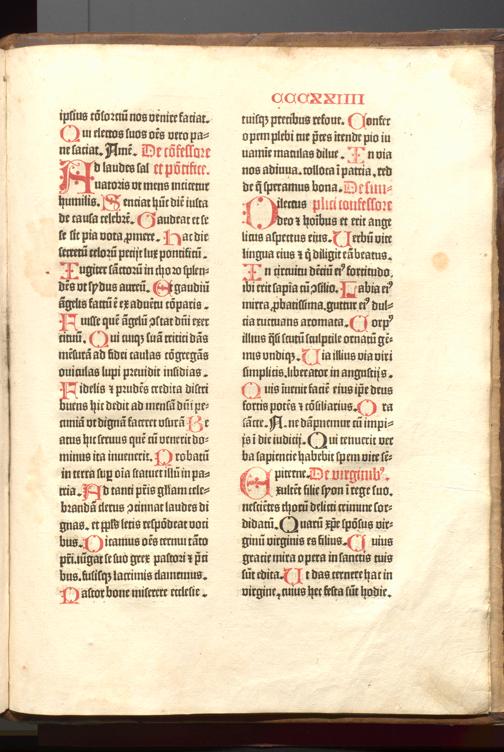 CCCXXIIII
ipsius cōsorciū nos venire faciat.
Qui electos suos oēs vero pa-
ne saciat. Amē. De cōfessore
Ad laudes sal et pōtifice.
uatoris ut mens incitetur
humilis. Senciat hūc diē iusta
de causa celebrē. Gaudeat et se
se sic pia vota ꝓmere. Hac die
secretū celorū petijt lux pontificū.
Fugitet sāctorū in choro splen-
dēs ut sydus aureū. Et gaudiū
āgelis factū ē ex aduētu cōparis.
Fuisse quē āgelū ꝯstat dn̄i exer
cituū. Qui cuiqȝ suā tritici dās
mēsurā ad fidei caulas cōgregās
ouiculas lupi preuidit insidias.
Fidelis et prudēs credita discri
buens hic dedit ad mensā dn̄i pe-
cuniā ut dignā faceret vsurā Be
atus hic seruus quē cū venerit do-
minus ita inuenerit. Probatū
in terra suꝑ oīa statuet illū in pa-
tria. Ad tanti p̄ris gl̄iam cele-
brandā clerus ꝯcinnat laudes di
gnas. et pp̄ls letis respōdeat voci
bus. Oramus oēs ternui tāto
pr̄i. iūgat se suo grex pastori et p̄ci
bus. fusisqȝ lacrimis clamemus.
Pastor bone miserere ecclesie.
tuisqȝ precibus refoue. Confer
opem plebi tue p̄ces itende pio iu
uamie maculas dilue. In via
nos adiuua. colloca ī patria. red
de q̄ speramus bona. De sim-
Dilectus plici confessore
deo et hoībus et erit ange
licus aspectus eius. Uerbū vite
lingua eius et q̄ diligit eū beatus.
In circuitu dētiū eiꝰ fortitudo.
ibi erit sapīa cū ꝯsilio. Labia eiꝰ
mirra ꝓbatissima. guttur eiꝰ dul-
cia ructuans aromata. Corpꝰ
illius q̄si scutū sculptile ornatū gē-
mis vndiqȝ. Uia illius via viri
simplicis. liberator in angustijs.
Quis īuenit faciē eius ip̄e deus
fortis potēs et cōsiliarius. Ora
sācte. A. ne dāpnemur cū impi-
js ī die iudicij. Qui tenuerit ver
ba sapiencie habebit spem vite sē-
piterne. De virginibꝰ.
Exultēt filie syon ī rege suo.
nesciētes thorū delicti crimine sor-
didatū. Quarū xp̄c spōsus vir-
ginū virginis es filius. Cuius
gracie mira opera in sanctis tuis
sūt edita. Ut das cernere hac in
virgine, cuius hec festa sūt hodie.